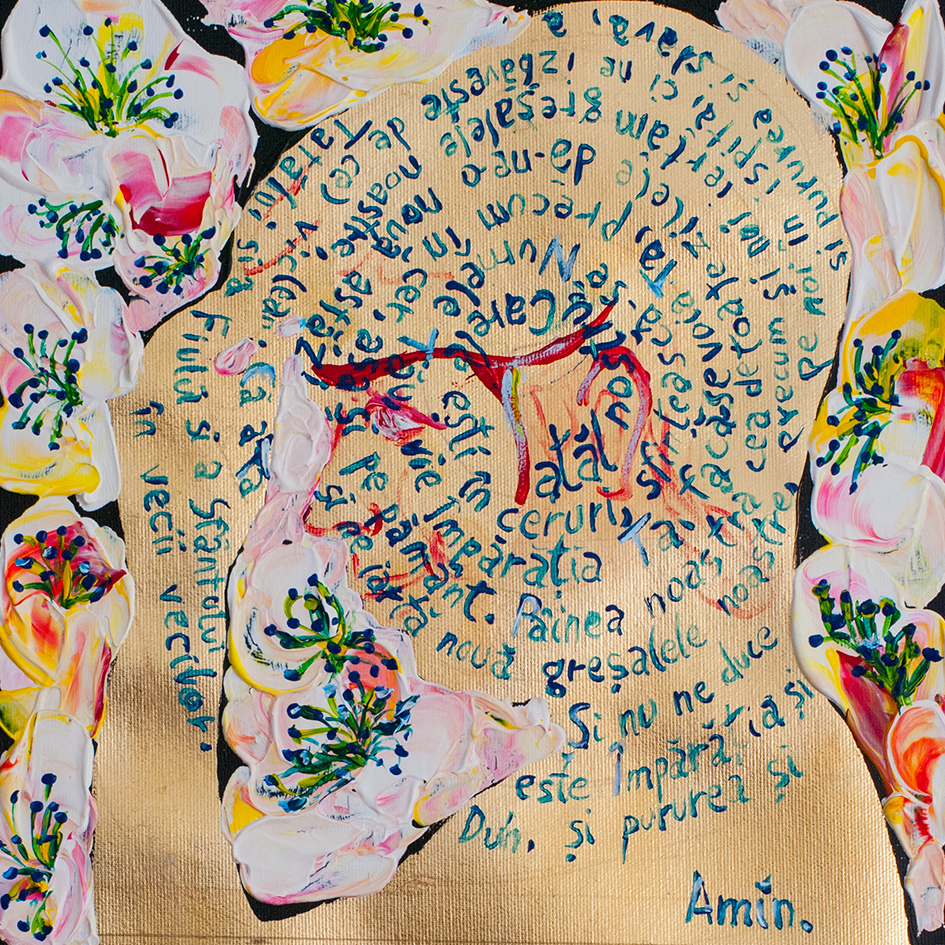 Tatăl nostru Care ești în ceruri,
sfințească-se Numele Tău vie împărăția Ta
facă-se voia Ta, precum în cer, așa și pe pământ.
Pâinea noastră cea de toate zilele, dă-ne-o nouă astăzi
și ne iartă nouă greșalele noastre,
precum și noi iertăm greșalele noastre
Și nu ne duce pe noi în ispită, ci ne izbăvește de cel viclean.
Că a Ta este Împărăția și puruvrea și slava, a Tatălui, și a
Fiului și a Sfântului Duh, și pururea și
în vecii vecilor.
Amin.